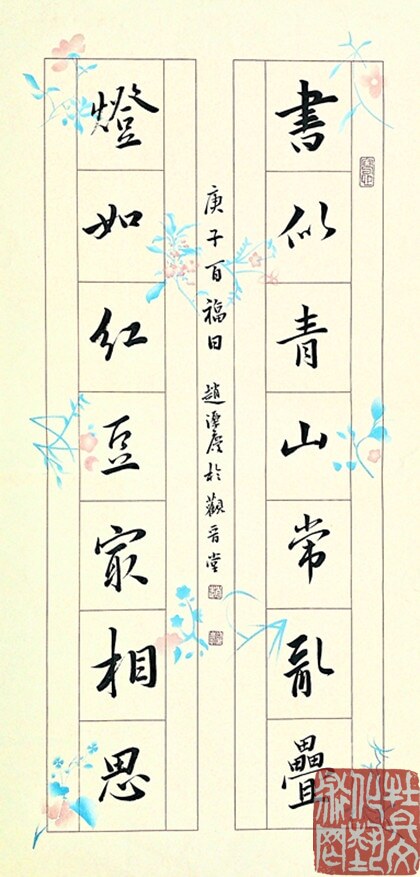 書似青山常亂疊
燈如紅豆最相思
庚子百福日 趙 於觀晋堂